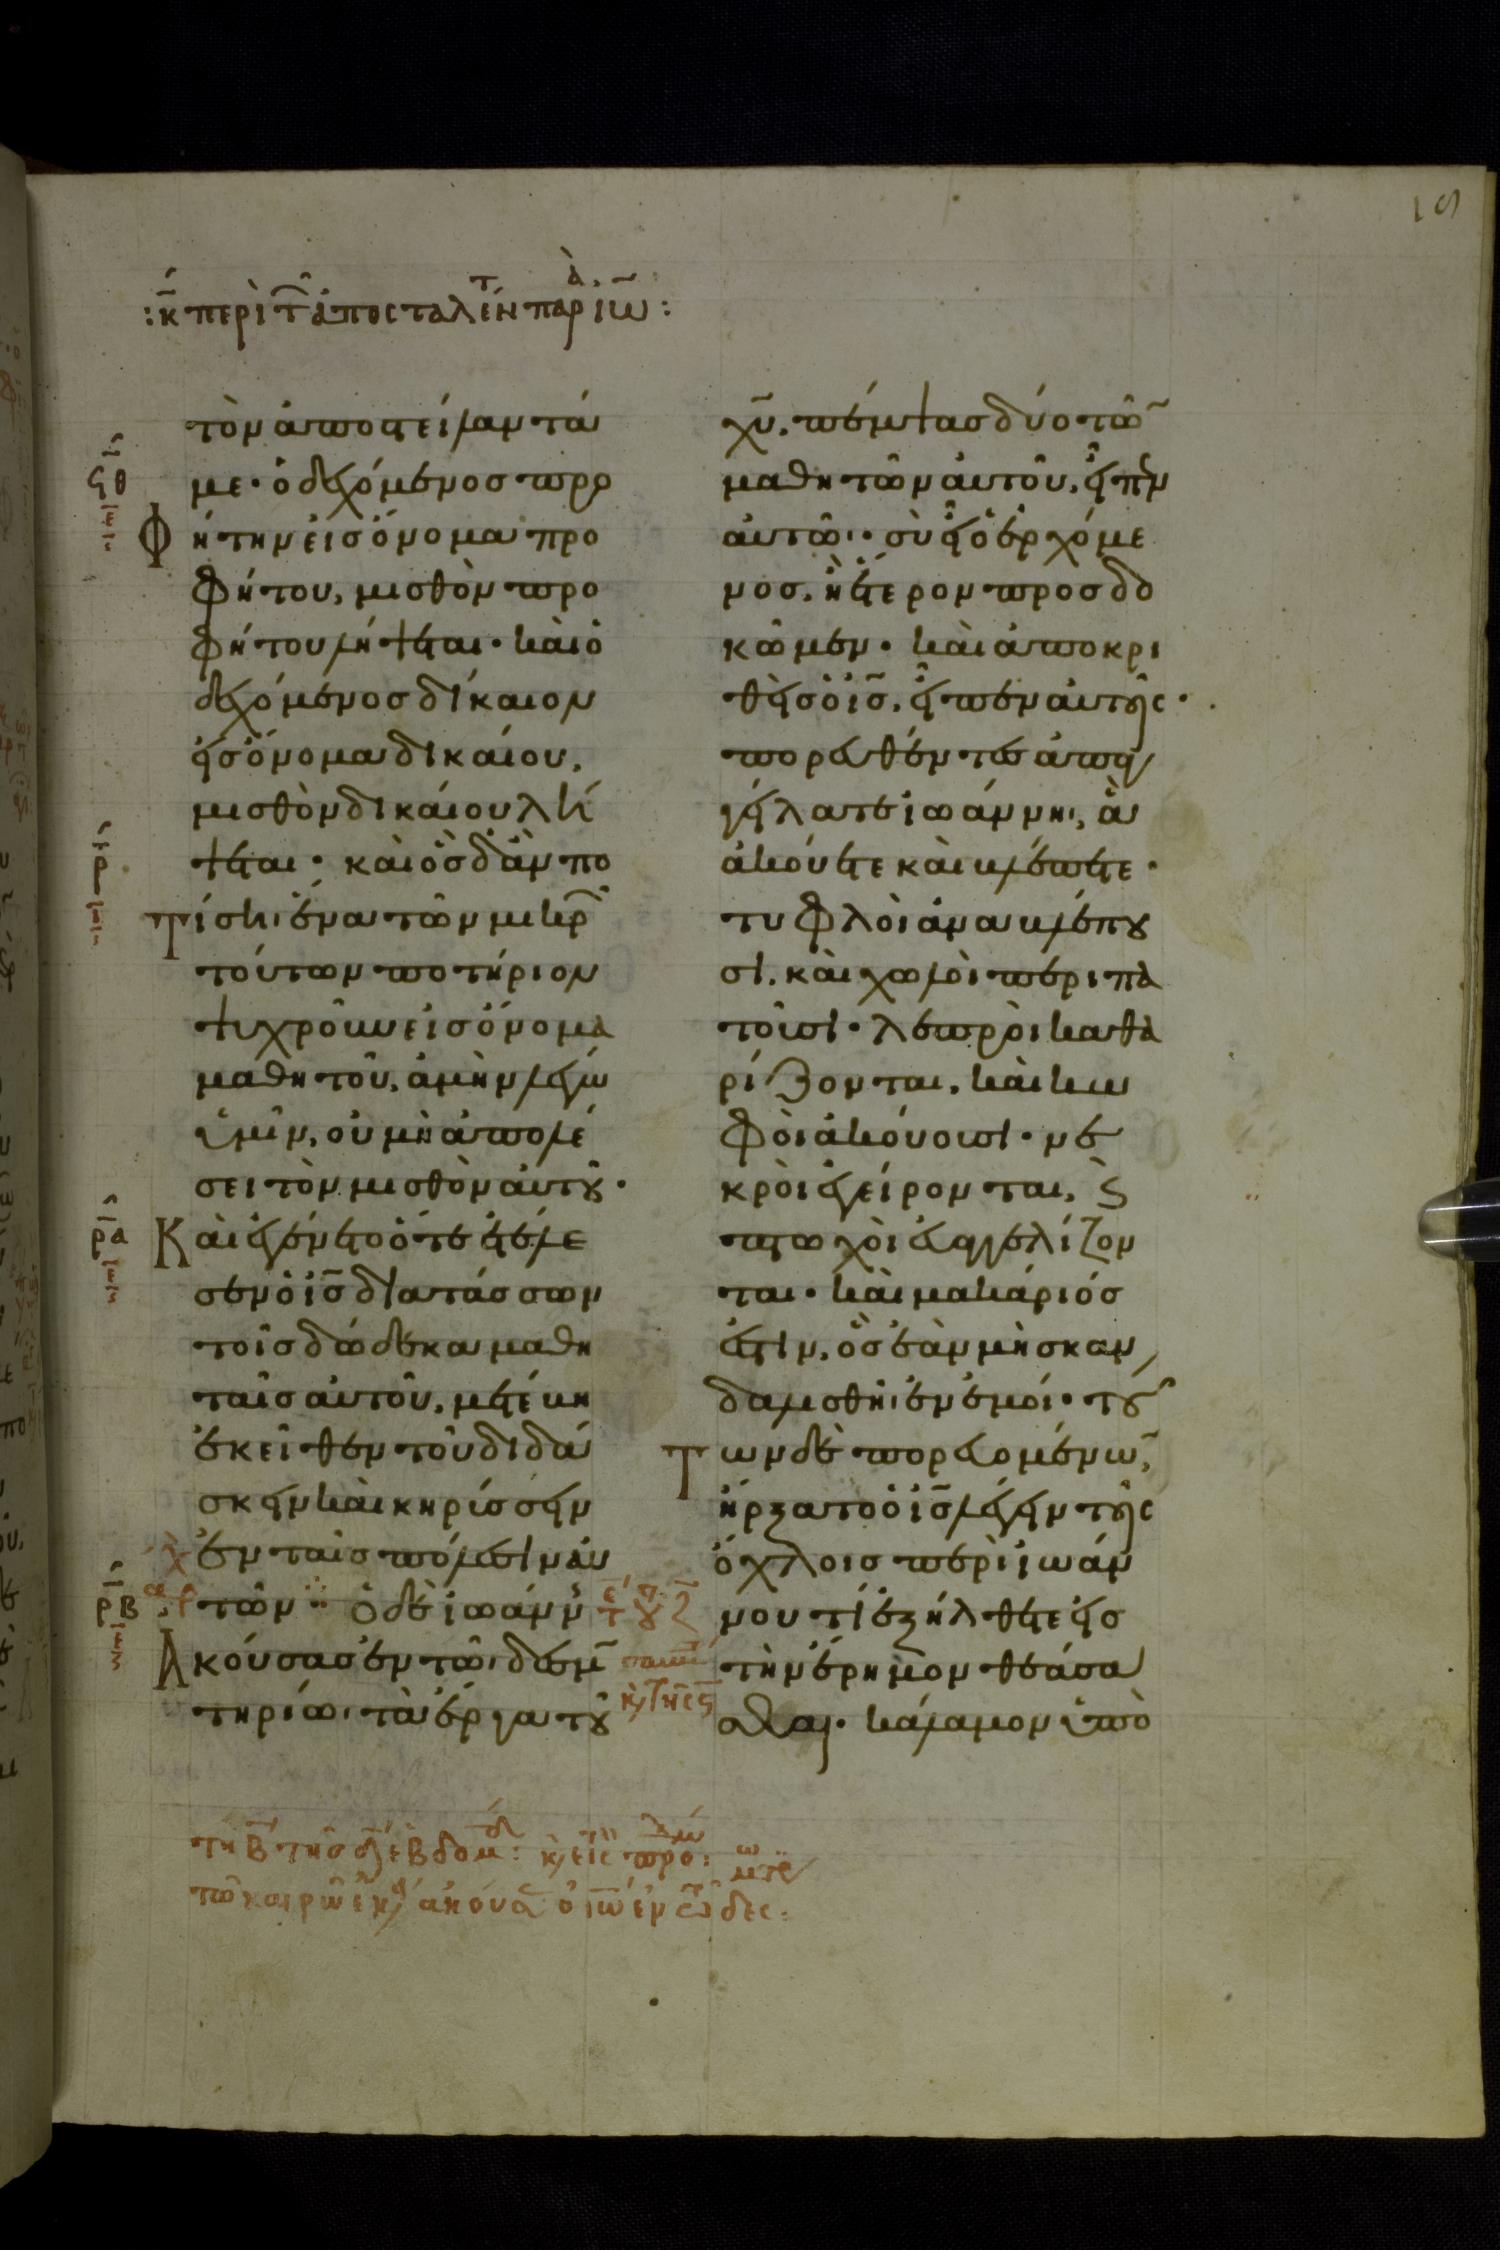 :κ̄ περὶ τ ἀποσταλέντ παρὰ ιω:
τὸν ἀποστείλαντά
με· ὁ δεχόμενος προ
φήτην εἰς ὄνομα προ
φήτου, μισθὸν προ
φήτου λήψεται· καὶ ὁ
δεχόμενος δίκαιον
εἰς ὄνομα δικαίου,
μισθὸν δικαίου λή
ψεται· καὶ ὃς δ' ἂν πο
τίσηι ἕνα τῶν μικρ
τούτων ποτήριον
ψυχροῦ εἰς ὄνομα
μαθητοῦ, ἀμὴν λέγω
ὑμῖν, οὐ μὴ ἀπολέ
σει τὸν μισθὸν αὐτοῦ·
Καὶ ἐγένετο ὅτε ἐτέλε
σεν ὁ ις̄ διατάσσων
τοῖς δώδεκα μαθη
ταῖς αὐτοῦ, μετέβη
ἐκεῖθεν τοῦ διδά
σκειν καὶ κηρύσσειν
ἐν ταῖς πόλεσιν αὐ
τῶν· Ὁ δὲ ἰωάννης
Ἀκούσας ἐν τῶι δεσμ
τηρίωι τὰ ἔργα τοῦ
χῡ, πέμψας δύο τῶ
μαθητῶν αὐτοῦ, εἶπεν
αὐτῶι· σὺ εἶ ὁ ἐρχόμε
νος, ἢ ἕτερον προσδο
κῶμεν· καὶ ἀποκρι
θεὶς ὁ ις̄, εἶπεν αὐτοῖς·
πορευθέντες ἀπαγ
γείλατε ἰωάννηι, ἃ
ἀκούετε καὶ βλέπετε·
τυφλοὶ ἀναβλέπου
σι, καὶ χωλοὶ περιπα
τοῦσι· λεπροὶ καθα
ρίζονται, καὶ κω
φοὶ ἀκούουσι· νε
κροὶ ἐγείρονται, ϗ
πτωχοὶ εὐαγγελίζον
ται· καὶ μακάριός
ἐστιν, ὃς ἐὰν μὴ σκαν
δαλισθῆι ἐν ἐμοί· τού
Των δὲ πορευομένω,
ἤρξατο ὁ ις̄ λέγειν τοῖς
ὄχλοις περὶ ἰωάν
νου τί ἐξήλθετε εἰς
τὴν ἔρημον θεάσα
σθαι· κάλαμον ὑπὸ